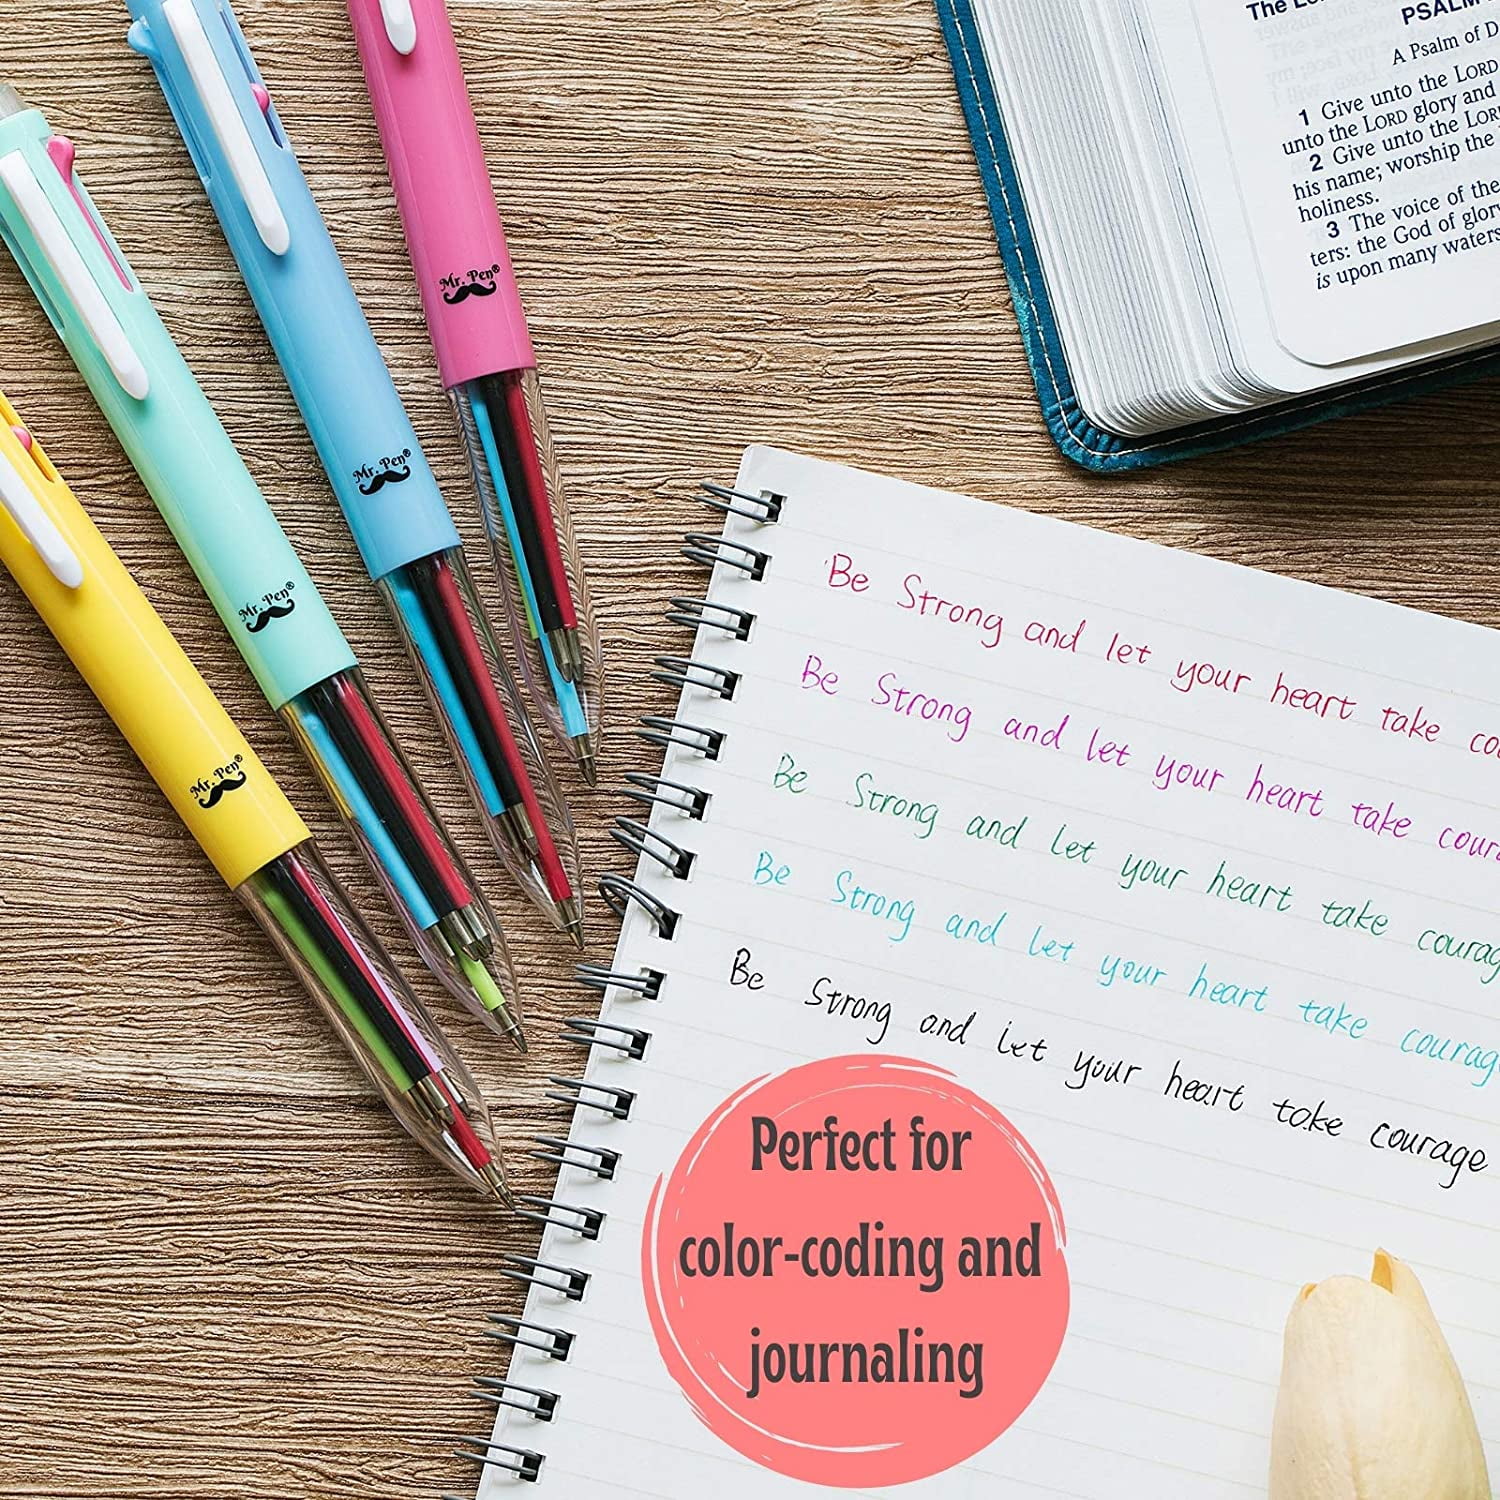 The Lor
PSALM
A Psalm of D
1 Give unto the LORD
unto the LORD glory and
2 Give unto the LOR
his name; worship the
holiness.
3 The voice of the
ters: the God of glory
is upon many waters
Mr. Pen®
Mr. Pen®
Mr. Pen®
Mr. Pen®
Be Strong and let your heart take co
Be Strong and let your heart take cour
Be Strong and let your heart take courag
Be Strong and let your heart take courag
Be Strong and let your heart take courage
Perfect for
color-coding and
journaling